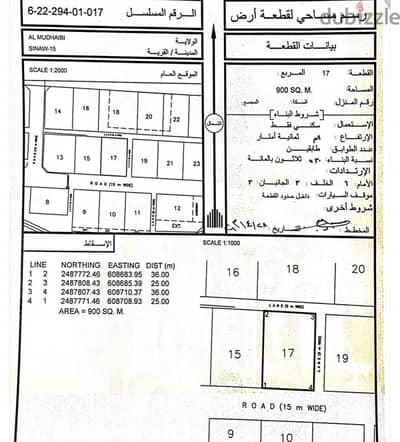 6-22-294-01-017
الرقم المسلسل
رسم مساحي لقطعة أرض
dubizzle
AL MUDHAIBI
الولاية
SINAW-15
المدينة / القرية
بيانات القطعة
SCALE 1:2000
الموقع العام
القطعة: 17 المربع:
المساحة: 900 SQ. M.
رقم المنزل:
[شروط البناء]
الإستعمال: سكني فقط
الإرتفاع: ٨م ثمانية أمتار
عدد الطوابق: طابقين
نسبة البناء: ٣٠٪ ثلاثون بالمائة
الإرتدادات:
الأمام: ٦ الخلف: ٣ الجانبان: ٣
موقف السيارات: داخل حدود القطعة
شروط أخرى:
المخطط:
التاريخ:
الشمال
14
16
18
20
22
13
15
17
19
21
23
ROAD (15 m WIDE)
8
9
10
11
12
EXT.
الإسقاط
SCALE 1:1000
LINE NORTHING EASTING DIST (m)
1 2 2487772.46 608683.95 36.00
2 3 2487808.43 608685.39 25.00
3 4 2487807.43 608710.37 36.00
4 1 2487771.46 608708.93 25.00
AREA = 900 SQ. M.
16
18
20
2
3
15
17
19
1
4
ROAD (15 m WIDE)
9
10